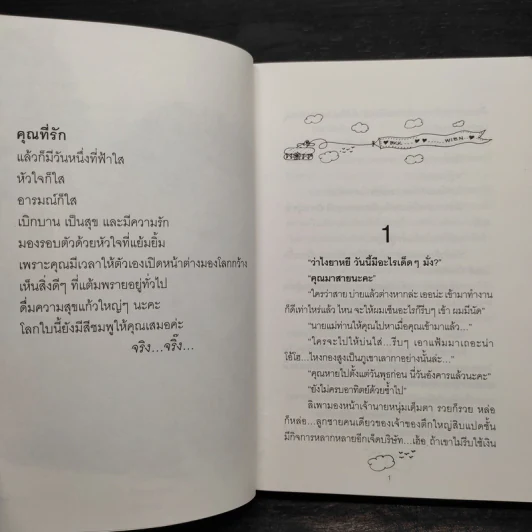 คุณที่รัก
แล้วก็มีวันหนึ่งที่ฟ้าใส
หัวใจก็ใส
อารมณ์ก็ใส
เบิกบาน เป็นสุข และมีความรัก
มองรอบตัวด้วยหัวใจที่แย้มยิ้ม
เพราะคุณมีเวลาให้ตัวเองเปิดหน้าต่างมองโลกกว้าง
เห็นสิ่งดีๆ ที่แต้มพรายอยู่ทั่วไป
ดื่มความสุขแก้วใหญ่ๆ นะคะ
โลกใบนี้ยังมีสีชมพูให้คุณเสมอค่ะ
จริง...จริ๊ง...
BKK WIEN
1
"ว่าไงยาหยี วันนี้มีอะไรเด็ดๆ มั่ง?"
"คุณมาสายนะคะ"
"ใครว่าสาย บ่ายแล้วต่างหากล่ะ เออน่ะ เข้ามาทำงาน
ก็ดีเท่าไหร่แล้ว ไหน จะให้ผมเซ็นอะไรก็รีบๆ เข้า ผมมีนัด"
"นายแม่ท่านให้คุณไปหาเมื่อคุณเข้ามาแล้ว..."
"ใครจะไปให้บ่นใส่...รีบๆ เอาแฟ้มมาเถอะน่า
โอ้โฮ...ไหงกองสูงเป็นภูเขาเลากาอย่างนั้นล่ะ..."
"คุณหายไปตั้งแต่วันพุธก่อน นี่วันอังคารแล้วนะคะ"
"ยังไม่ครบอาทิตย์ด้วยซ้ำไป"
ลิเพามองหน้าเจ้านายหนุ่มเต็มตา รวยก็รวย หล่อ
ก็หล่อ...ลูกชายคนเดียวของเจ้าของตึกใหญ่สิบแปดชั้น
มีกิจการหลากหลายอีกเจ็ดบริษัท...เฮ้อ ถ้าเขาไม่รีบใช้เงิน